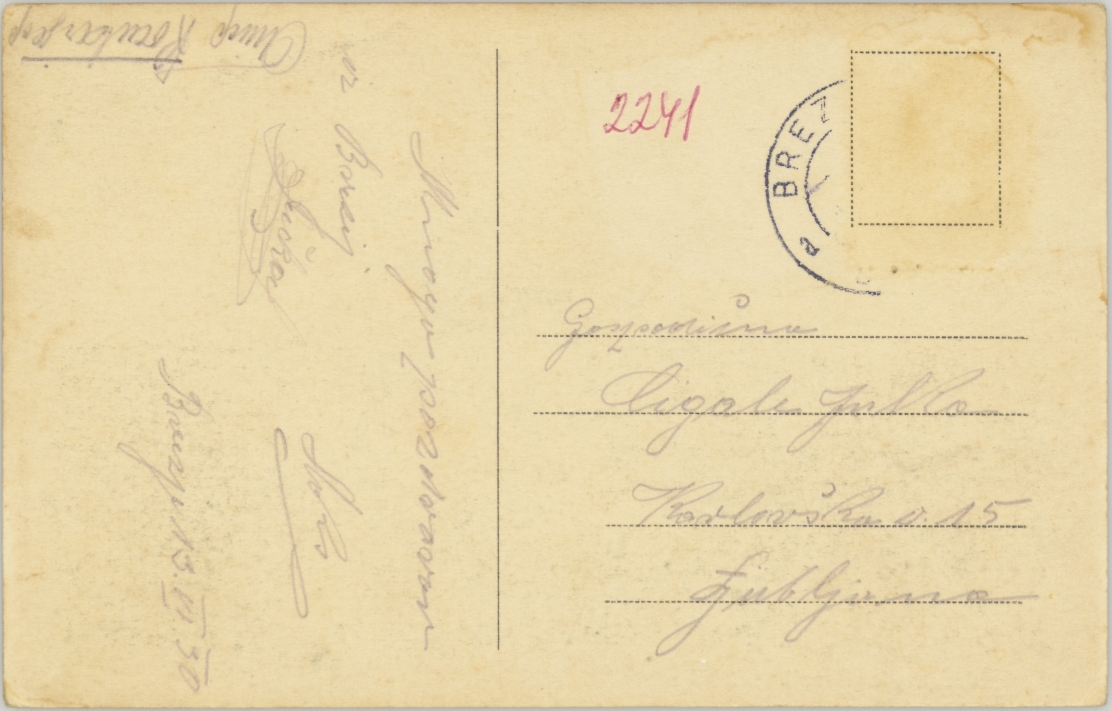 Mnogo pozdravov
iz Brezij
Duška
Brezje 13.VI.30
2241
BREZ
Gospodična
Cigale Julka
Karlovška c. 15
Ljubljana